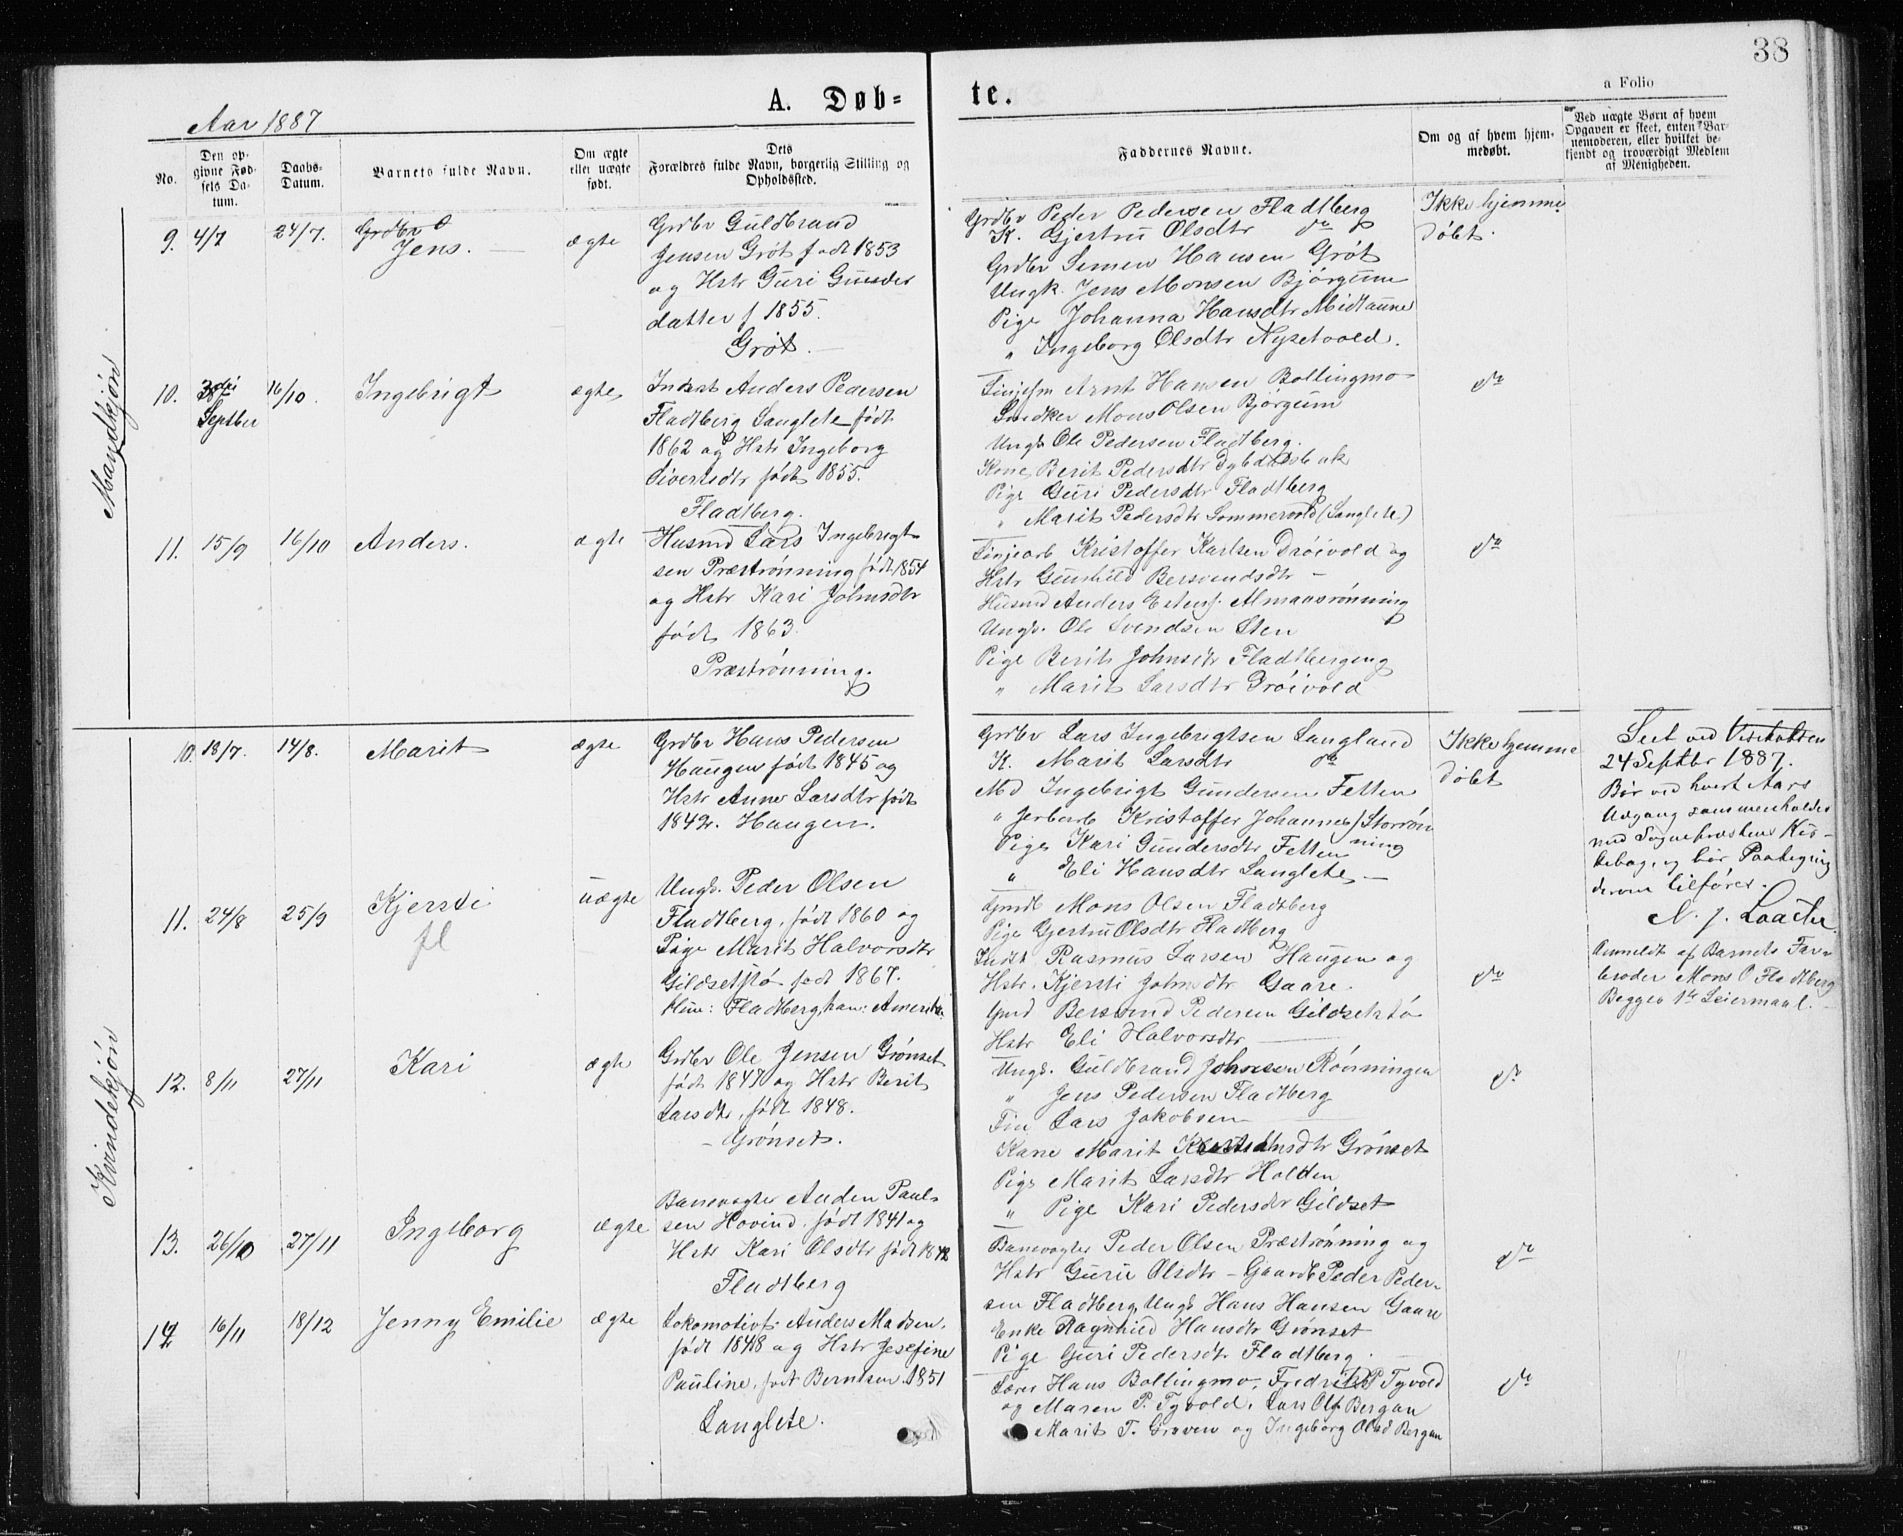 38
a Folio
A. Døb-
te.
Aar 1887
No.
Den op-
givne Fød-
sels Da-
tum.
Daabs-
Datum.
Barnets fulde Navn.
Om ægte
eller uægte
født.
Dets
Forældres fulde Navn, borgerlig Stilling og
Opholdssted.
Faddernes Navne.
Om og af hvem hjem-
medøbt.
Ved uægte Børn af hvem
Opgaven er skeet, enten Bar-
nemoderen, eller hvilket be-
kjendt og troværdigt Medlem
af Menigheden.
Mandkjøn
9. 4/7 24/7. Jens. ægte
Grdbr Guldbrand
Jensen Grøt født 1853
og Hstr Guri
datter f 1855.
Grøt.
Grdbr Peder Pedersen Fladtberg
K. Gjertru Olsdtr do
Grdbr Simen Hansen Grøt
Ungk. Jens Monsen Bjørgum
Pige Johanna Hansdtr Midtaune
" Ingeborg Olsdtr Nysetvold.
Ikke hjemme
døbt.
10. Septber 16/10. Ingebrigt ægte
Inderst Anders Pedersen
Fladtberg Langlete født
1862 og Hstr Ingeborg
Sivertsdtr født 1855.
Fladtberg.
Arnt Hansen Bollingmo
Snedker Mons Olsen Bjørgum
Ungk. Ole Pedersen Fladtberg.
Kone Berit Pedersdtr
Pige Guri Pedersdtr Fladtberg
" Marit Pedersdtr Sommervold (Langlete)
do
11. 15/9 16/10 Anders. ægte
Husmd Lars Ingebrigt-
sen Præstrønning født 1854
og Hstr Kari Johnsdtr
født 1863.
Præstrønning.
Linjearb Kristoffer Karlsen Drøivold og
Hstr Gunhild Bersvendsdtr
Husmd Anders Estens. Almaasrønning
Ungk. Ole Svendsen Sten
Pige Berit Johnsdtr Fladtbergeng
" Marit Larsdtr Drøivold
do
Kvindekjøn
10. 18/7. 14/8. Marit ægte
Grdbr Hans Pedersen
Haugen født 1845 og
Hstr Anne Larsdtr født
1842. Haugen.
Grdbr Lars Ingebrigtsen Langland
K. Marit Larsdtr do
Md Ingebrigt Gundersen Fetten
" Jerbarb Kristoffer Johannes/Storrøn
ning
Pige Kari Gundersdtr Fetten
" Eli Hansdtr Langlete
Ikke hjemme
døbt
Seet ved Visitatsen
24 Septbr 1887.
Bør ved hvert Aars
Udgang sammenholdes
med Sognepræstens Kir-
kebog, og bør Paategning
derom tilføres.
N. J. Laache
11. 24/8 25/9 Kjersti uægte
fl
Ungk. Peder Olsen
Fladtberg, født 1860 og
Pige Marit Halvorsdtr
Gildsetstø født 1867.
Hun: Fladtberg, han: Amerika
Gmdt Mons Olsen Fladtberg
Pige Gjertru Olsdtr Fladtberg
Indst Rasmus Larsen Haugen og
Hstr. Kjersti Johnsdtr Gaare.
Gmd Bersvend Pedersen Gildsetstø
Hstr Eli Halvorsdtr
do
Anmeldt af Barnets Far-
broder Mons O Fladtberg
Begges 1ste Leiermaal.
12. 8/11 27/11 Kari ægte
Grdbr Ole Jensen Grønset
født 1847 og Hstr Berit
Larsdtr, født 1848.
Grønset.
Ungk. Guldbrand Johnsen Rønningen
" Jens Pedersen Fladtberg
Lars Jakobsen
Kone Marit Grønset
Pige Marit Larsdtr Holden
" Pige Kari Pedersdtr Gildset
do
13. 26/10 27/11 Ingeborg ægte
Banevogter Anden Paul-
sen Hovind, født 1841 og
Hstr Kari Olsdtr født 1842
Fladtberg
Banevogter Peder Olsen Præstrønning og
Hstr Guru Olsdtr - Gaardb Peder Peder-
sen Fladtberg, Ungk Hans Hansen Gaare
Enke Ragnhild Hansdtr Grønset
Pige Guri Pedersdtr Fladtberg.
do
14 16/11 18/12 Jenny Emilie ægte
Lokomotivf. Anders Madsen,
født 1848 og Hstr Josefine
Pauline, født Berntsen 1851
Langlete.
Lærer Hans Bollingmo, Fredrik P Tyvold
og Maren P. Tyvold, Lars Ols Bergan
Marit T. Graven og Ingeborg Olsd Bergan
do